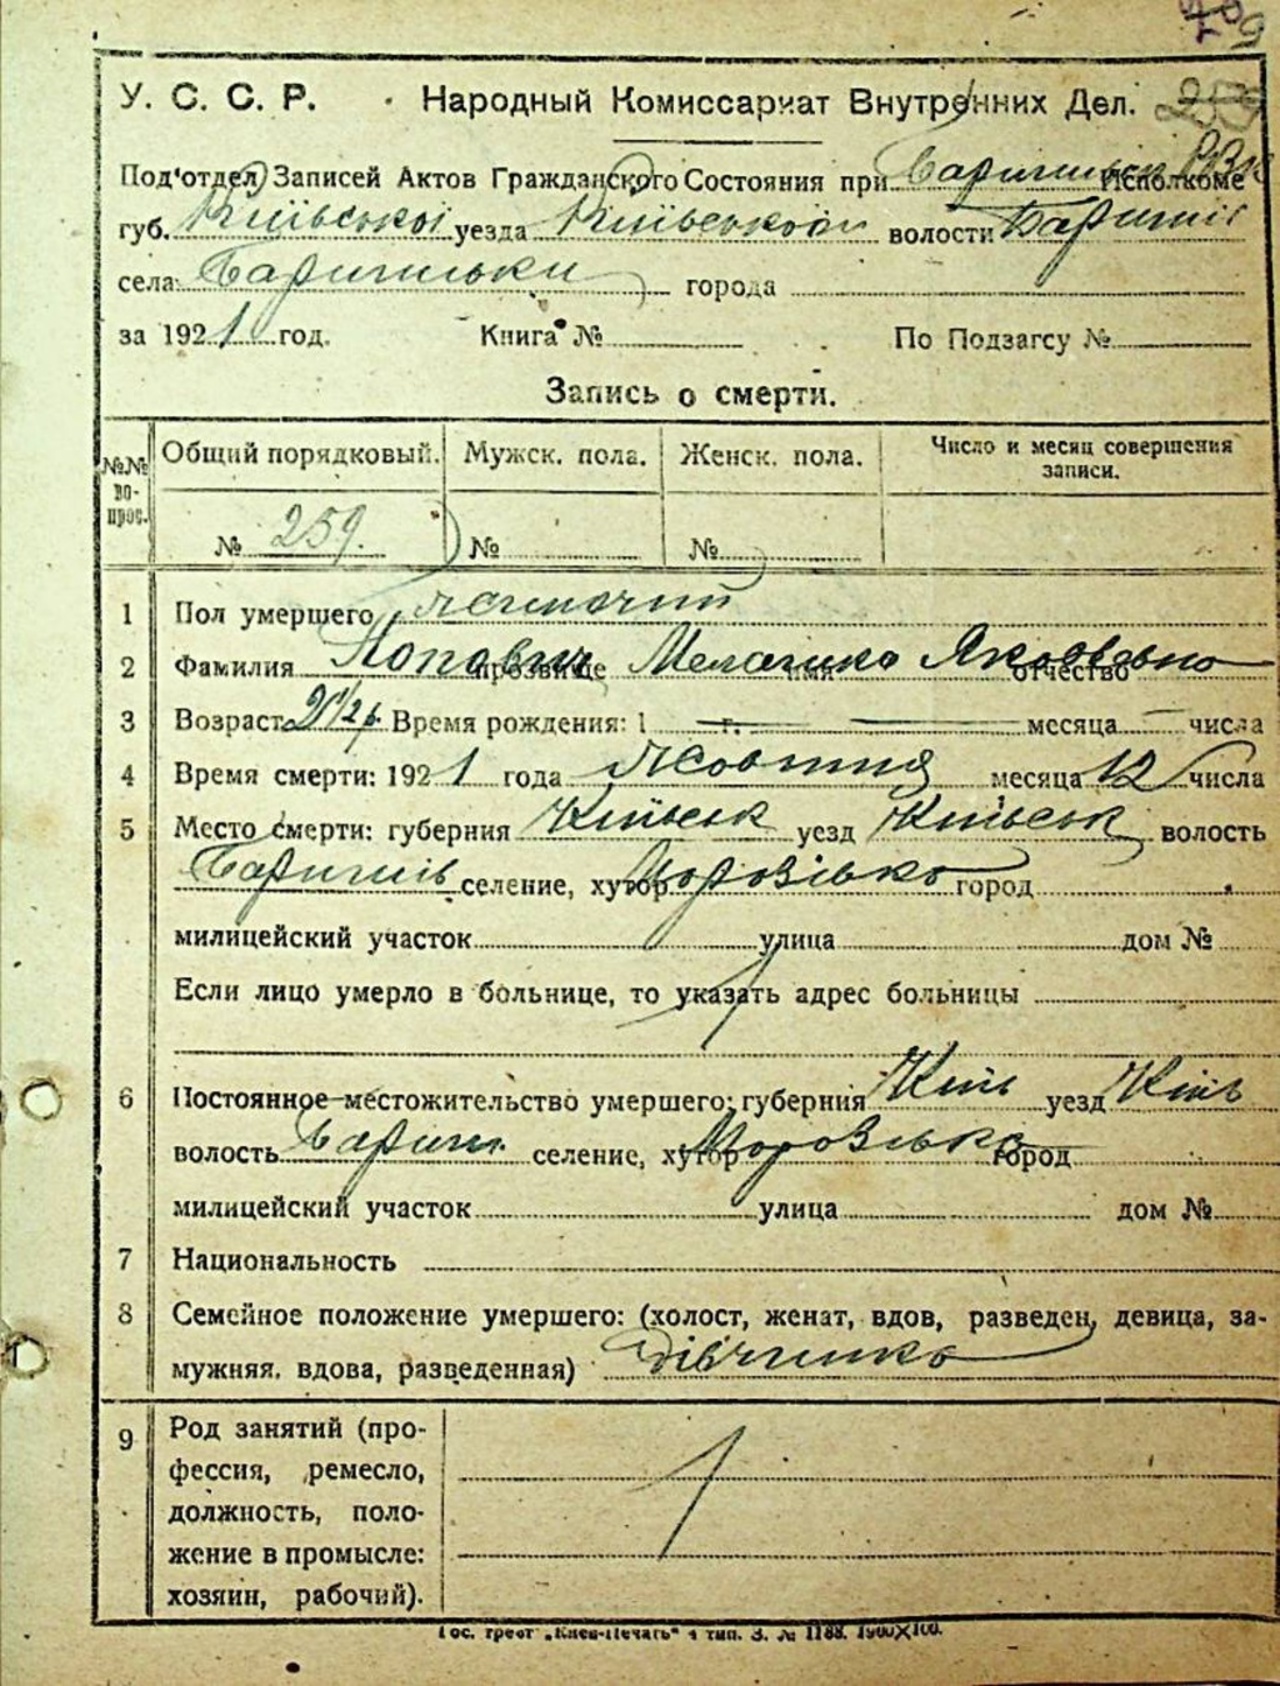 У. С. С. Р. Народный Комиссариат Внутренних Дел.
Под'отдел Записей Актов Гражданского Состояния при Исполкоме
губ. Київської уезда Київської волости Баришів
села Баришівки города
за 1921 год. Книга № По Подзагсу №
Запись о смерти.
№№ вопрос. Общий порядковый. Мужск. пола. Женск. пола. Число и месяц совершения записи.
№ 259. № №
1 Пол умершего жіночий
2 Фамилия Попович прозвище Меланика имя Якововна отчество
3 Возраст 2 1/2 р. Время рождения: 1 г. месяца числа
4 Время смерти: 1921 года Жовтня месяца 12 числа
5 Место смерти: губерния Київськ уезд Київськ волость
Баришів селение, хутор Морозівка город
милицейский участок улица дом №
Если лицо умерло в больнице, то указать адрес больницы
6 Постоянное местожительство умершего: губерния Київ уезд Київ
волость Бариш. селение, хутор Морозівка город
милицейский участок улица дом №
7 Национальность
8 Семейное положение умершего: (холост, женат, вдов, разведен, девица, за-
мужняя, вдова, разведенная) дівчинка
9 Род занятий (про-
фессия, ремесло,
должность, поло-
жение в промысле:
хозяин, рабочий).
Гос. трест „Киев-Печать“ 4 тип. З. № 1188. 1900X100.